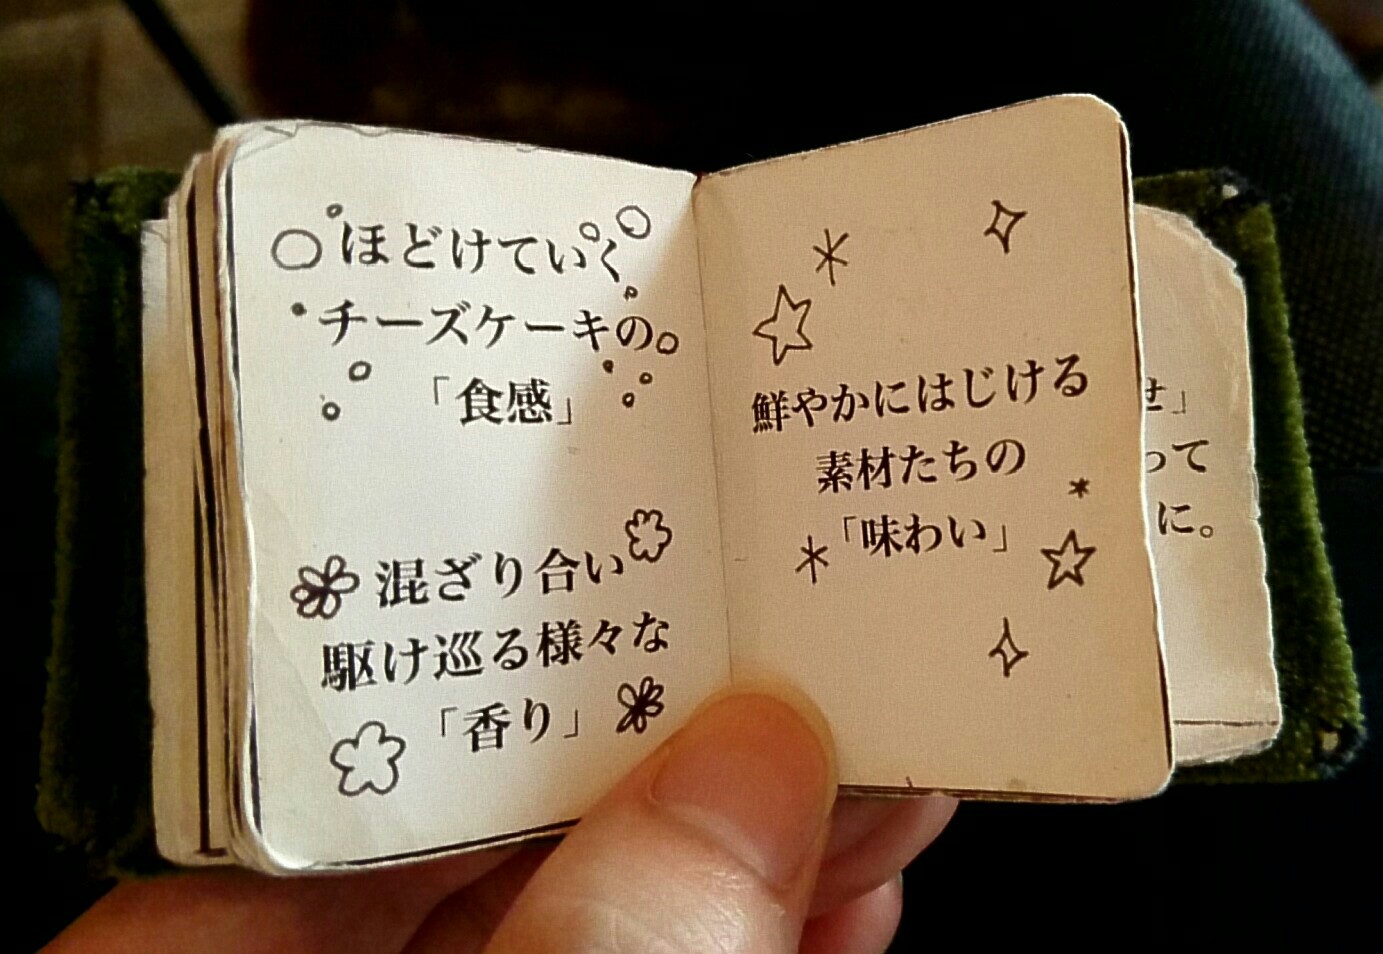 ほどけていく
チーズケーキの
「食感」
混ざり合い
駆け巡る様々な
「香り」
鮮やかにはじける
素材たちの
「味わい」
せ」
って
に。